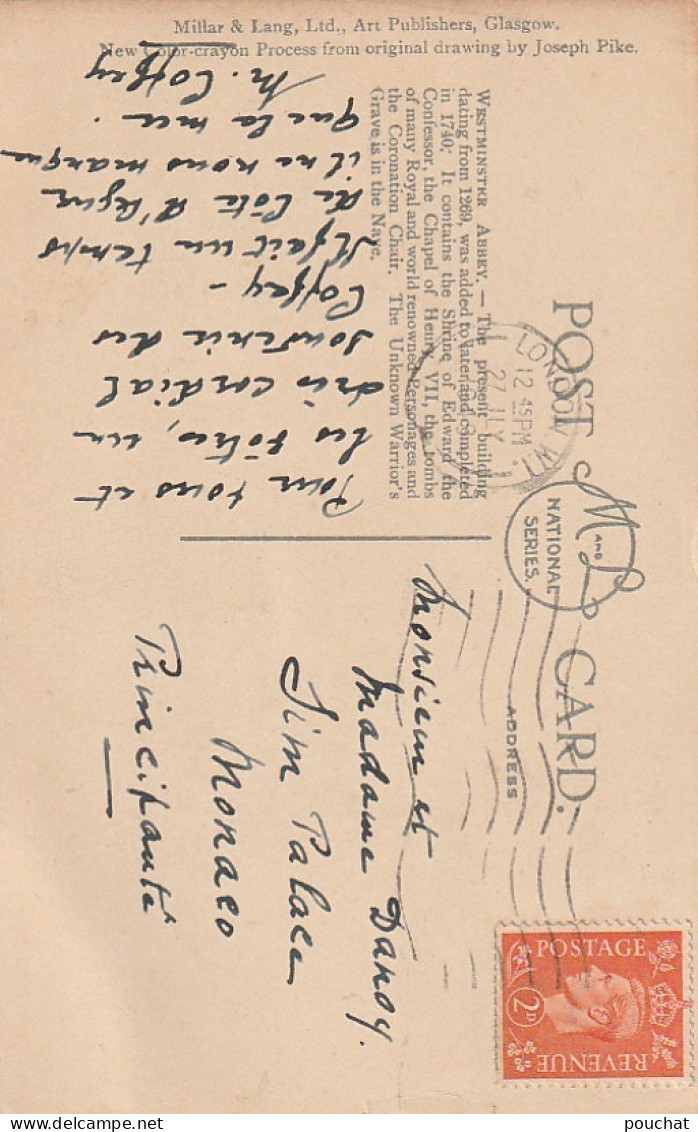 Millar & Lang, Ltd., Art Publishers, Glasgow.
New Color-crayon Process from original drawing by Joseph Pike.
POST CARD.
M AND L
NATIONAL
SERIES.
ADDRESS
WESTMINSTER ABBEY. — The present building
dating from 1269, was added to later and completed
in 1740: It contains the Shrine of Edward the
Confessor, the Chapel of Henry VII, the tombs
of many Royal and world renowned Personages and
the Coronation Chair. The Unknown Warrior's
Grave is in the Nave.
LONDON W1.
12 45 PM
27 JLY
Pour vous et
les vôtres, un
très cordial
souvenir des
Coffey —
Il fait un temps
de Côte d'Azur
il ne nous manque
que la mer.
M. Coffey
Monsieur et
Madame Danoy.
Sim Palace
Monaco
Principauté
POSTAGE
2D
REVENUE
pouchat